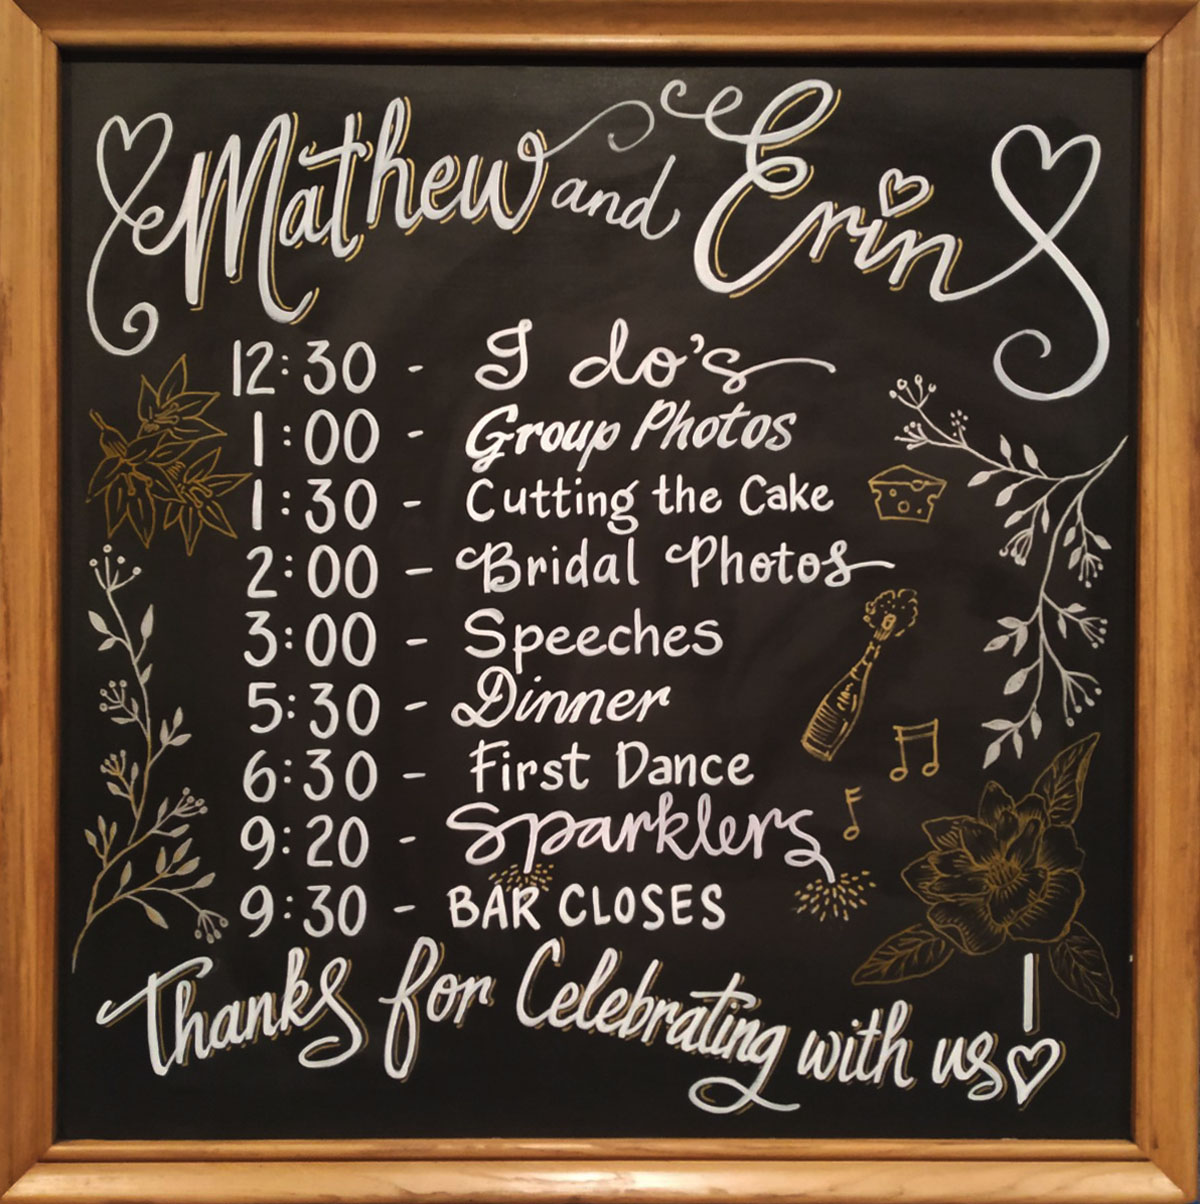 Mathew and Erin
12:30 - I do's
1:00 - Group Photos
1:30 - Cutting the Cake
2:00 - Bridal Photos
3:00 - Speeches
5:30 - Dinner
6:30 - First Dance
9:20 - Sparklers
9:30 - BAR CLOSES
Thanks for Celebrating with us!